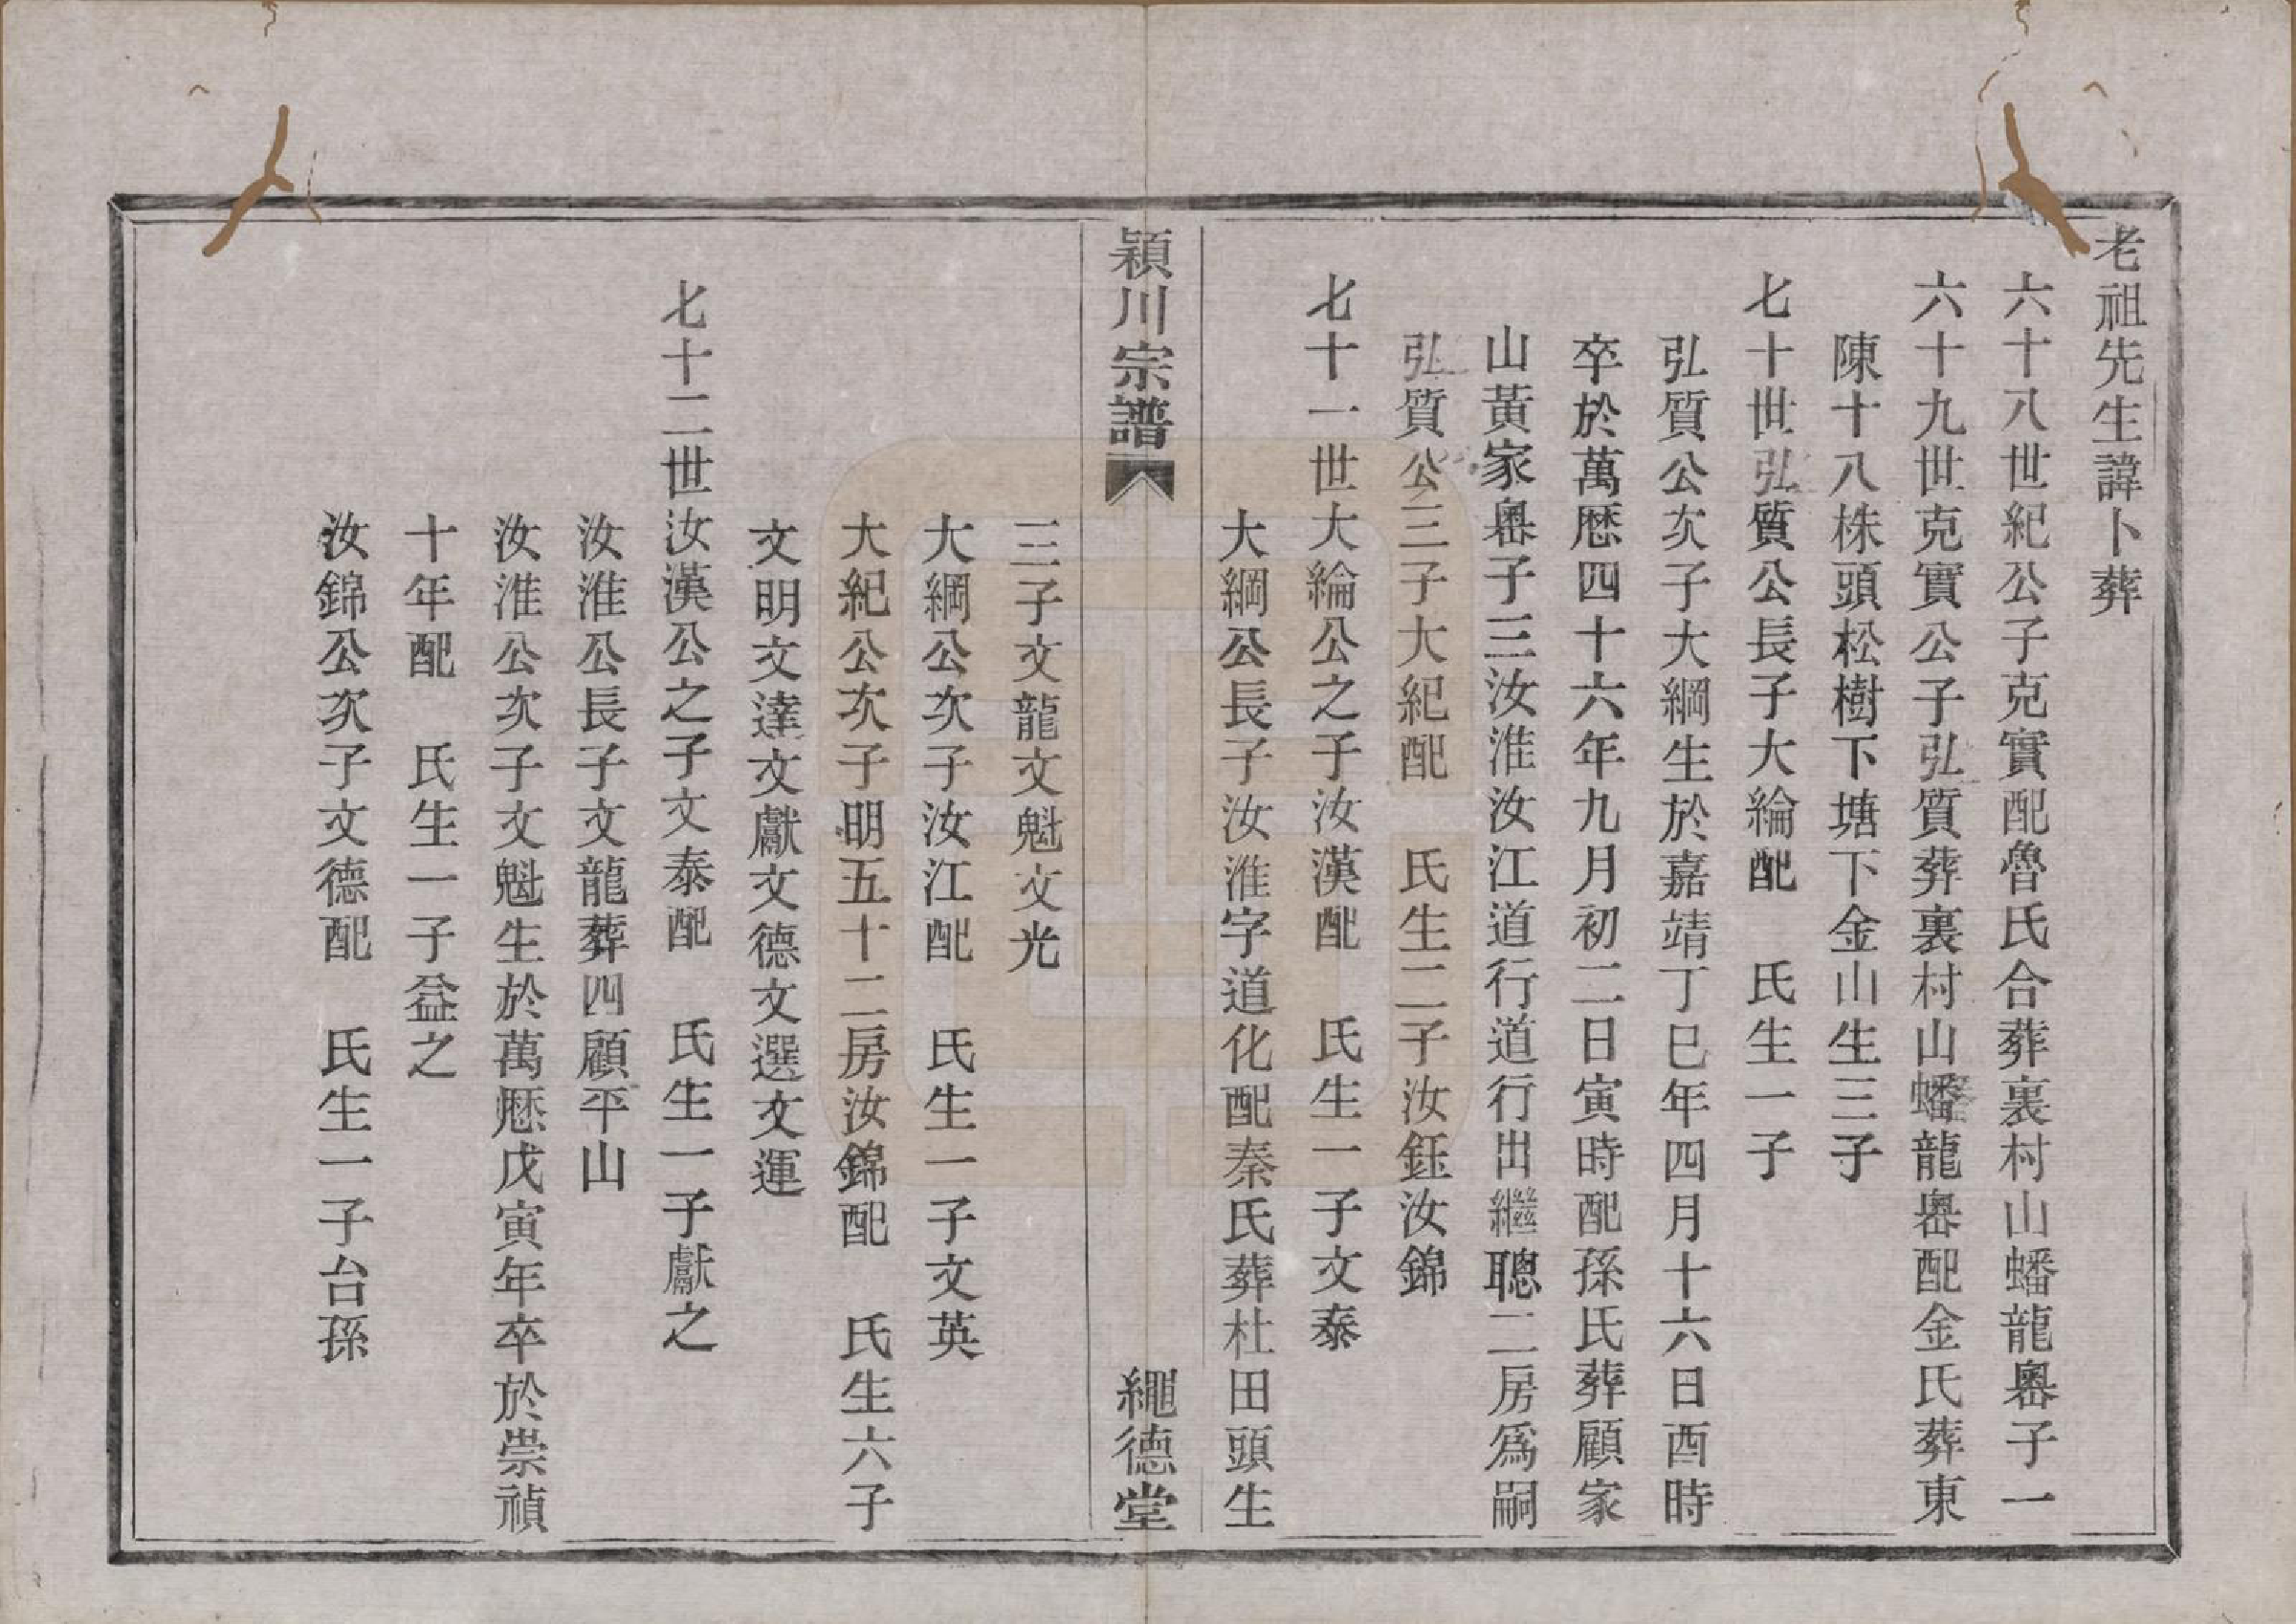 老祖先生諱卜葬
六十八世紀公子克實配魯氏合葬裏村山蟠龍嶴子一
六十九世克實公子弘質葬裏村山蟠龍嶴配金氏葬東
陳十八株頭松樹下塘下金山生三子
七十世弘質公長子大綸配　氏生一子
弘質公次子大綱生於嘉靖丁巳年四月十六日酉時
卒於萬歷四十六年九月初二日寅時配孫氏葬顧家
山黃家嶴子三汝淮汝江道行道行出繼聰二房爲嗣
弘質公三子大紀配　氏生二子汝鈺汝錦
七十一世大綸公之子汝漢配　氏生一子文泰
大綱公長子汝淮字道化配秦氏葬杜田頭生
潁川宗譜
繩德堂
三子文龍文魁文光
大綱公次子汝江配　氏生一子文英
大紀公次子明五十二房汝錦配　氏生六子
文明文達文獻文德文選文運
七十二世汝漢公之子文泰配　氏生一子獻之
汝淮公長子文龍葬四顧平山
汝淮公次子文魁生於萬歷戊寅年卒於崇禎
十年配　氏生一子益之
汝錦公次子文德配　氏生一子台孫